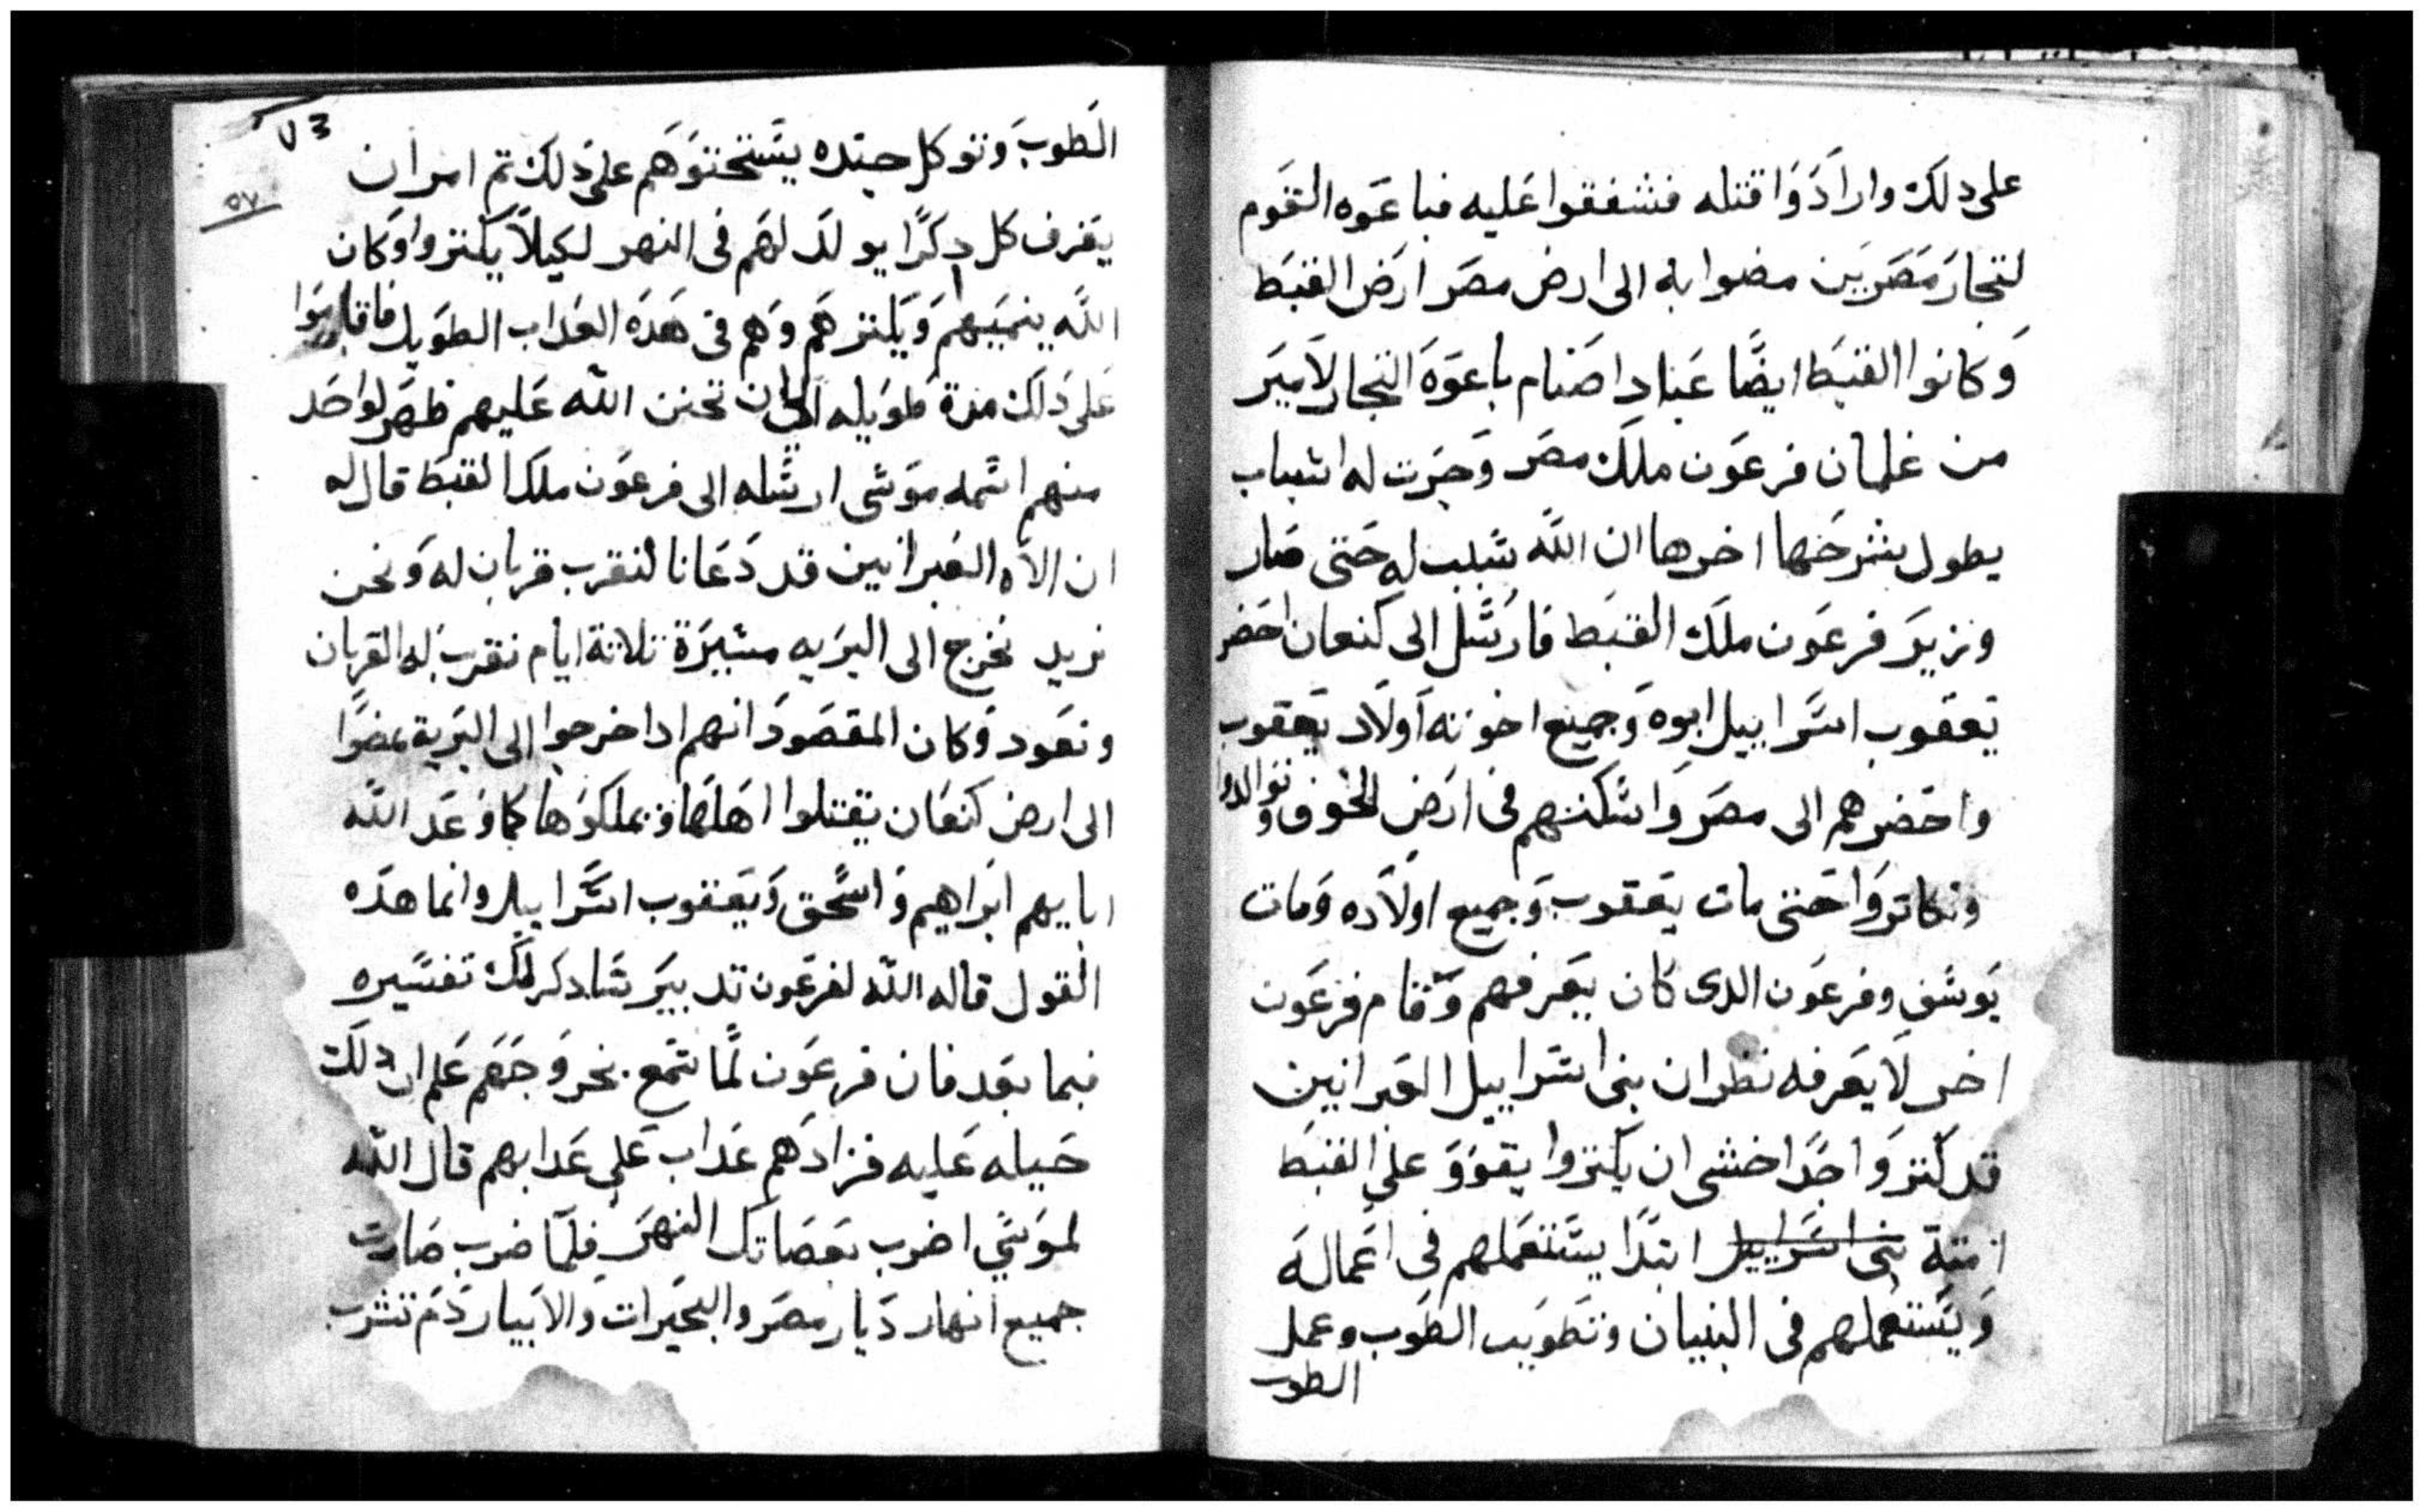 على دلك وارادوا قتله فشفقوا عليه فباعوه القوم
لتجار مصريين مضوا به الى ارض مصر ارض القبط
وكانوا القبط ايضًا عباد اصنام باعوه التجار لامير
من غلمان فرعون ملك مصر وجرت له اسباب
يطول بشرحها اخرها ان الله سبب له حتى صار
وزير فرعون ملك القبط فارسل الى كنعان احضر
يعقوب اسراييل ابوه وجميع اخوته اولاد يعقوب
واحضرهم الى مصر واسكنهم فى ارض الخوف وتوالدوا
وتكاتروا حتى مات يعقوب وجميع اولاده ومات
يوسف وفرعون الدى كان يعرفهم وقام فرعون
اخر لا يعرفه نظر ان بنى اسراييل العبرانيين
قد كتروا جدًا خشى ان يكتروا يقووَ على القبط
امته بنى اسراييل ابتدا يستعملهم فى اعماله
ويستعملهم فى البنيان وتطويب الطوب وعمل
الطوب
٧٣
٥٧
الطوب وتوكل جنده يستحتوهم على دلك تم امر ان
يغرف كل دكرًا يولد لهم فى النهر لكيلا يكتروا وكان
الله ينميهم ويكترهم وهم فى هده العداب الطويل فاقاموا
على دلك مدة طويله الى ان تحنن الله عليهم ظهر لواحد
منهم اسمه موسى ارسله الى فرعون ملك القبط قال له
ان الاه العبرانيين قد دعانا لنقرب قربان له ونحن
نريد نخرج الى البريه مسيرة تلاتة ايام نقرب له القربان
ونعود وكان المقصود انهم ادا خرجوا الى البرية يمضوا
الى ارض كنعان يقتلوا اهلها ويملكوها كما وعد الله
ابايهم ابراهيم واسحق ويعقوب اسراييل وانما هده
القول قاله الله لفرعون تدبير سادكر لك تفسيره
فيما بعد فان فرعون لما سمع بخروجهم علم ان دلك
حيله عليه فزادهم عداب على عدابهم قال الله
لموسى اضرب بعصاتك النهر فلما ضرب صارت
جميع انهار ديار مصر والبحيرات والابيار دم تشرب